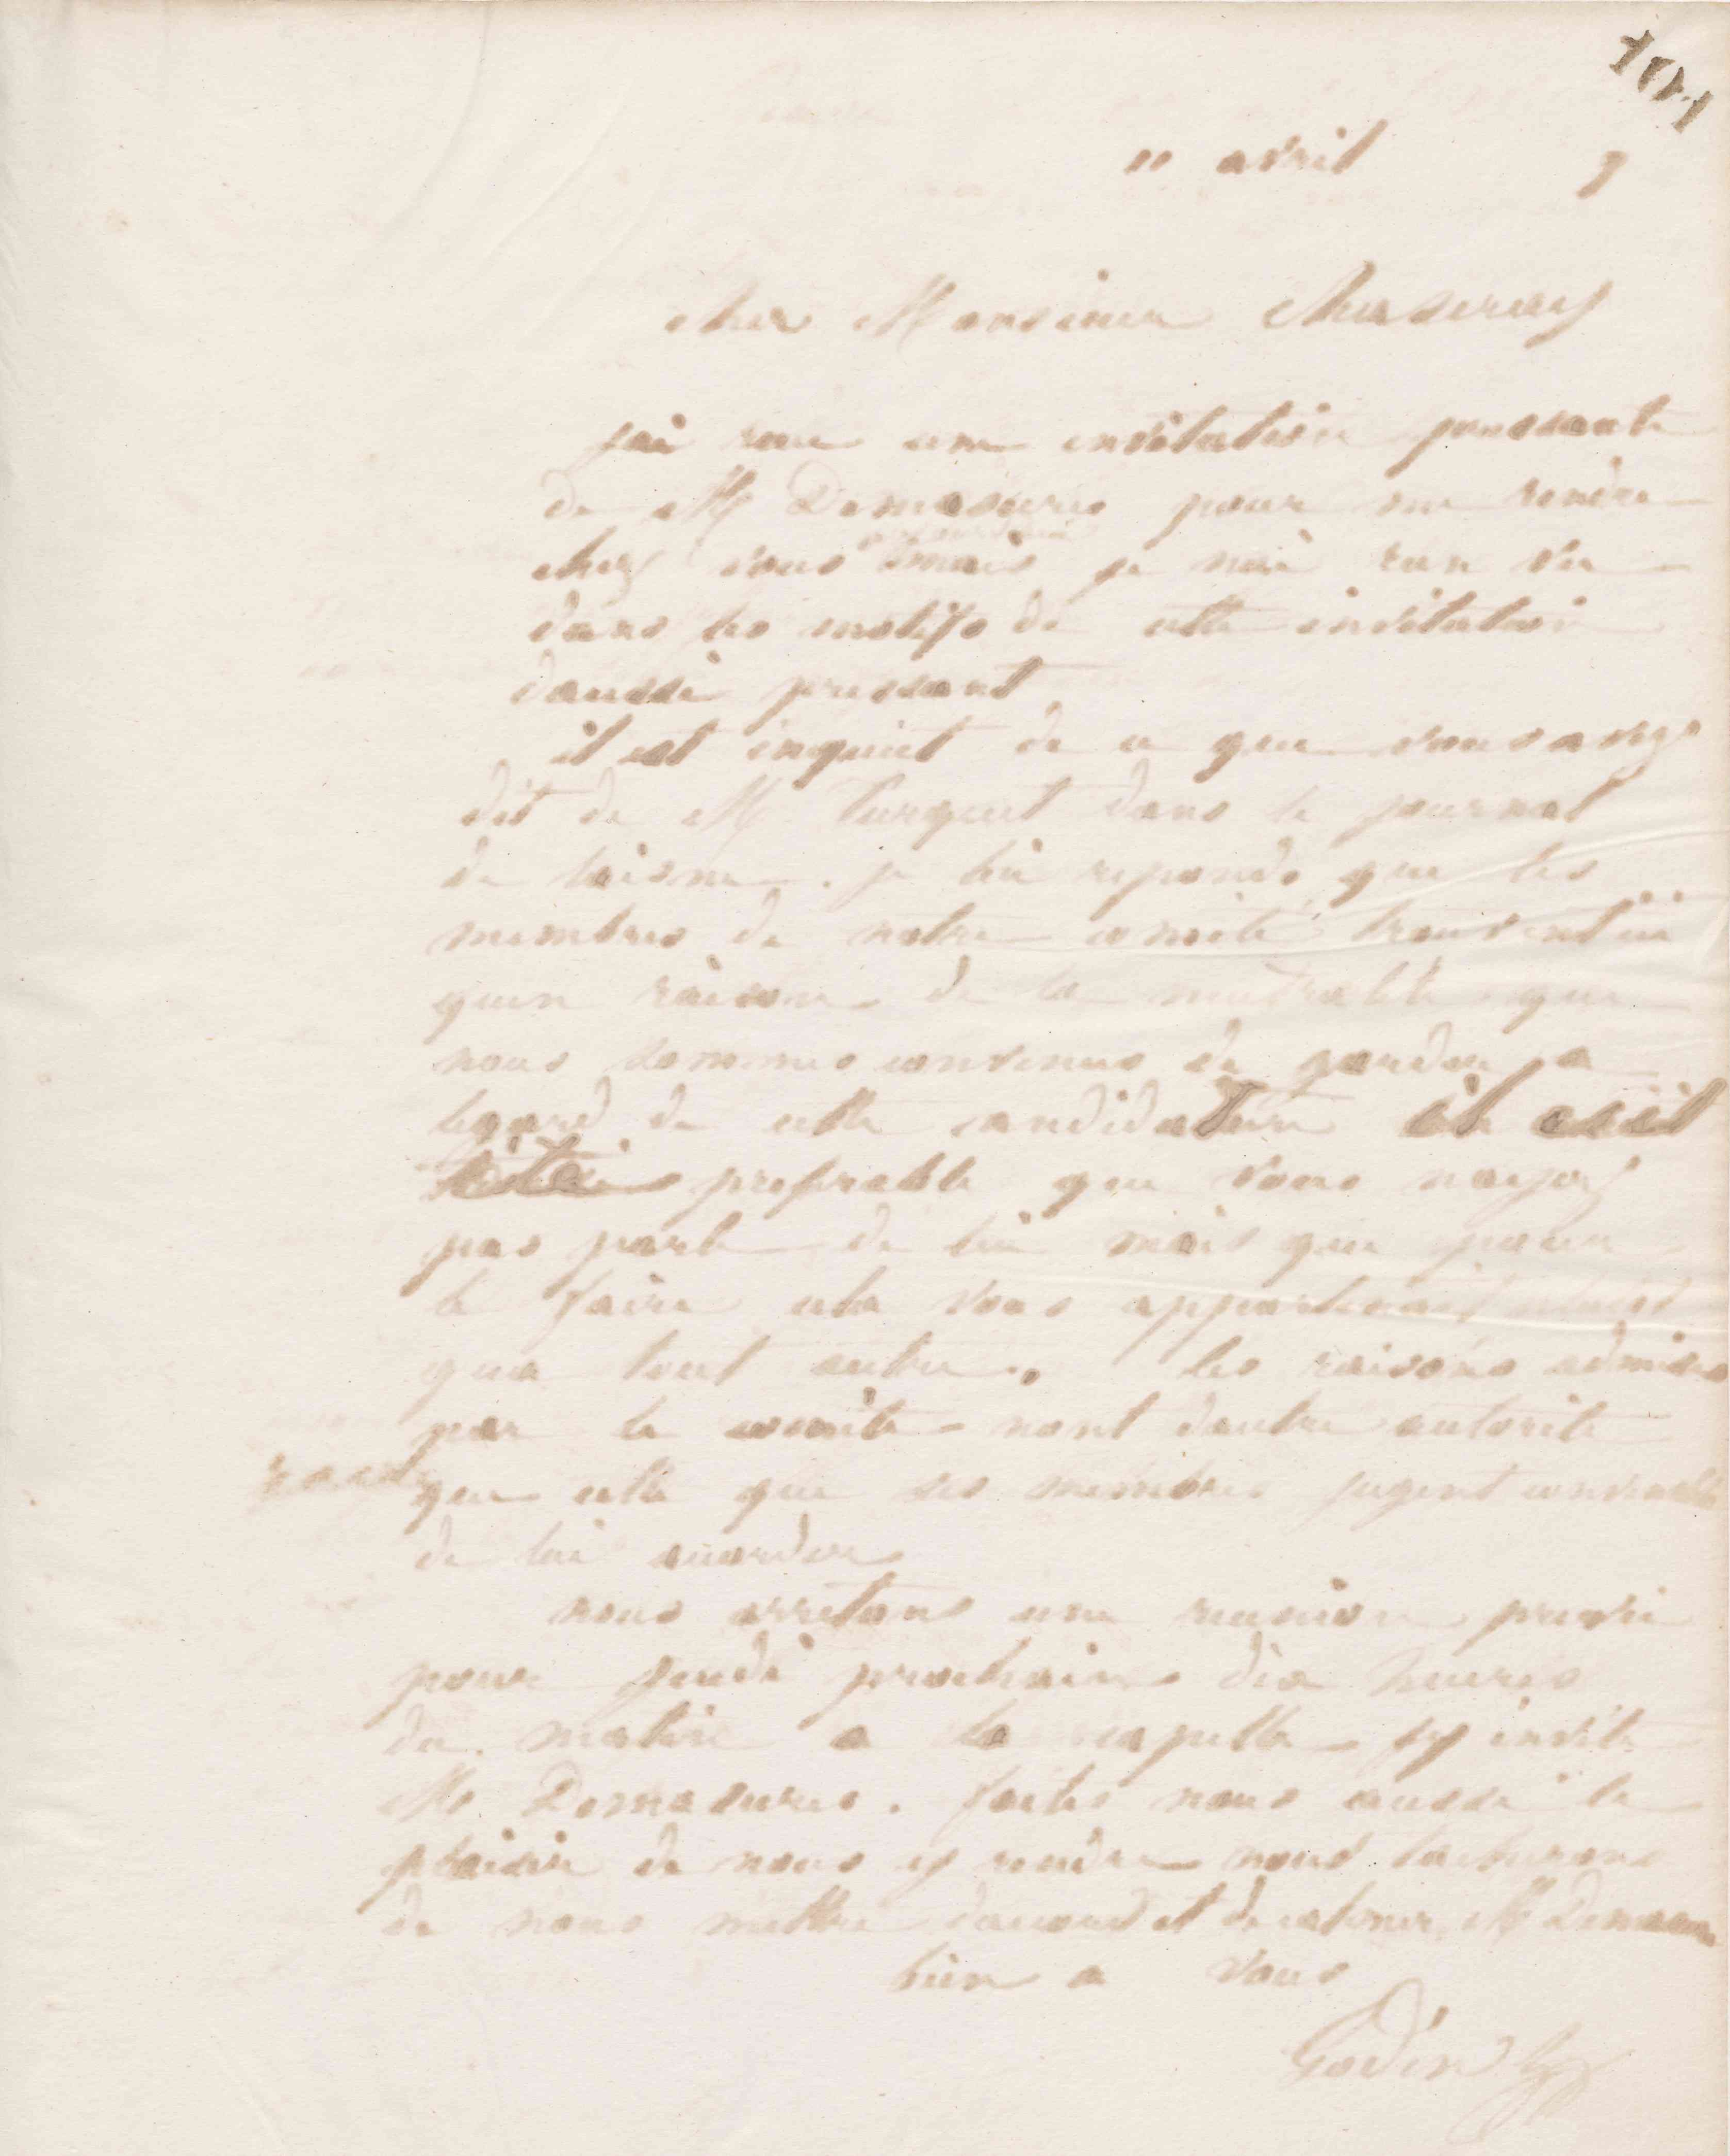 101
11 avril 9
cher Monsieur Chaseray
jai recu une invitation pressante
de Mr Demasures pour me rendre
chez vous mais je nai rien vu
dans les motifs de cette invitation
daussi pressant
il est inquiet de ce que vous avez
dit de Mr Turquet dans le journal
de laisne. je lui reponds que les
membres de notre comité trouvent
quen raison de la neutralité que
nous sommes convenus de garder a
legard de cette candidature
preferable que vous nayez
pas parlé de lui mais que pour
le faire cela vous appartenait
qua tout autre. les raisons admises
par le comité nont dautre autorité
que celle que ses membres jugent convenable
de lui accorder
nous arretons une reunion privée
pour jeudi prochain dix heures
du matin a la capelle jy invite
Mr Demasures. faites nous aussi le
plaisir de nous y rendre nous tacherons
de nous mettre daccord et de calmer Mr Demasures
bien a vous
Godin